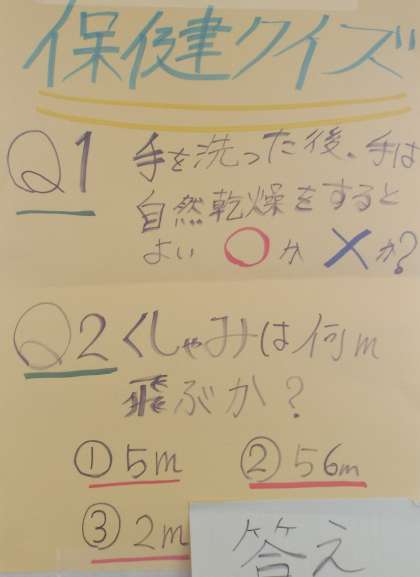 保健クイズ
Q1 手を洗った後、手は
自然乾燥をすると
よい ○か×か?
Q2 くしゃみは何m
飛ぶか?
① 5m ② 56m
③ 2m
答え